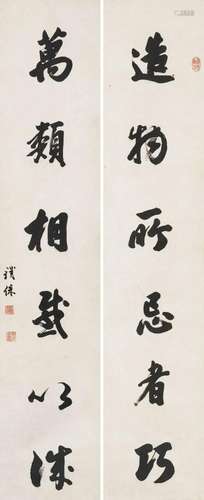 造物所忌者巧
萬類相感以誠